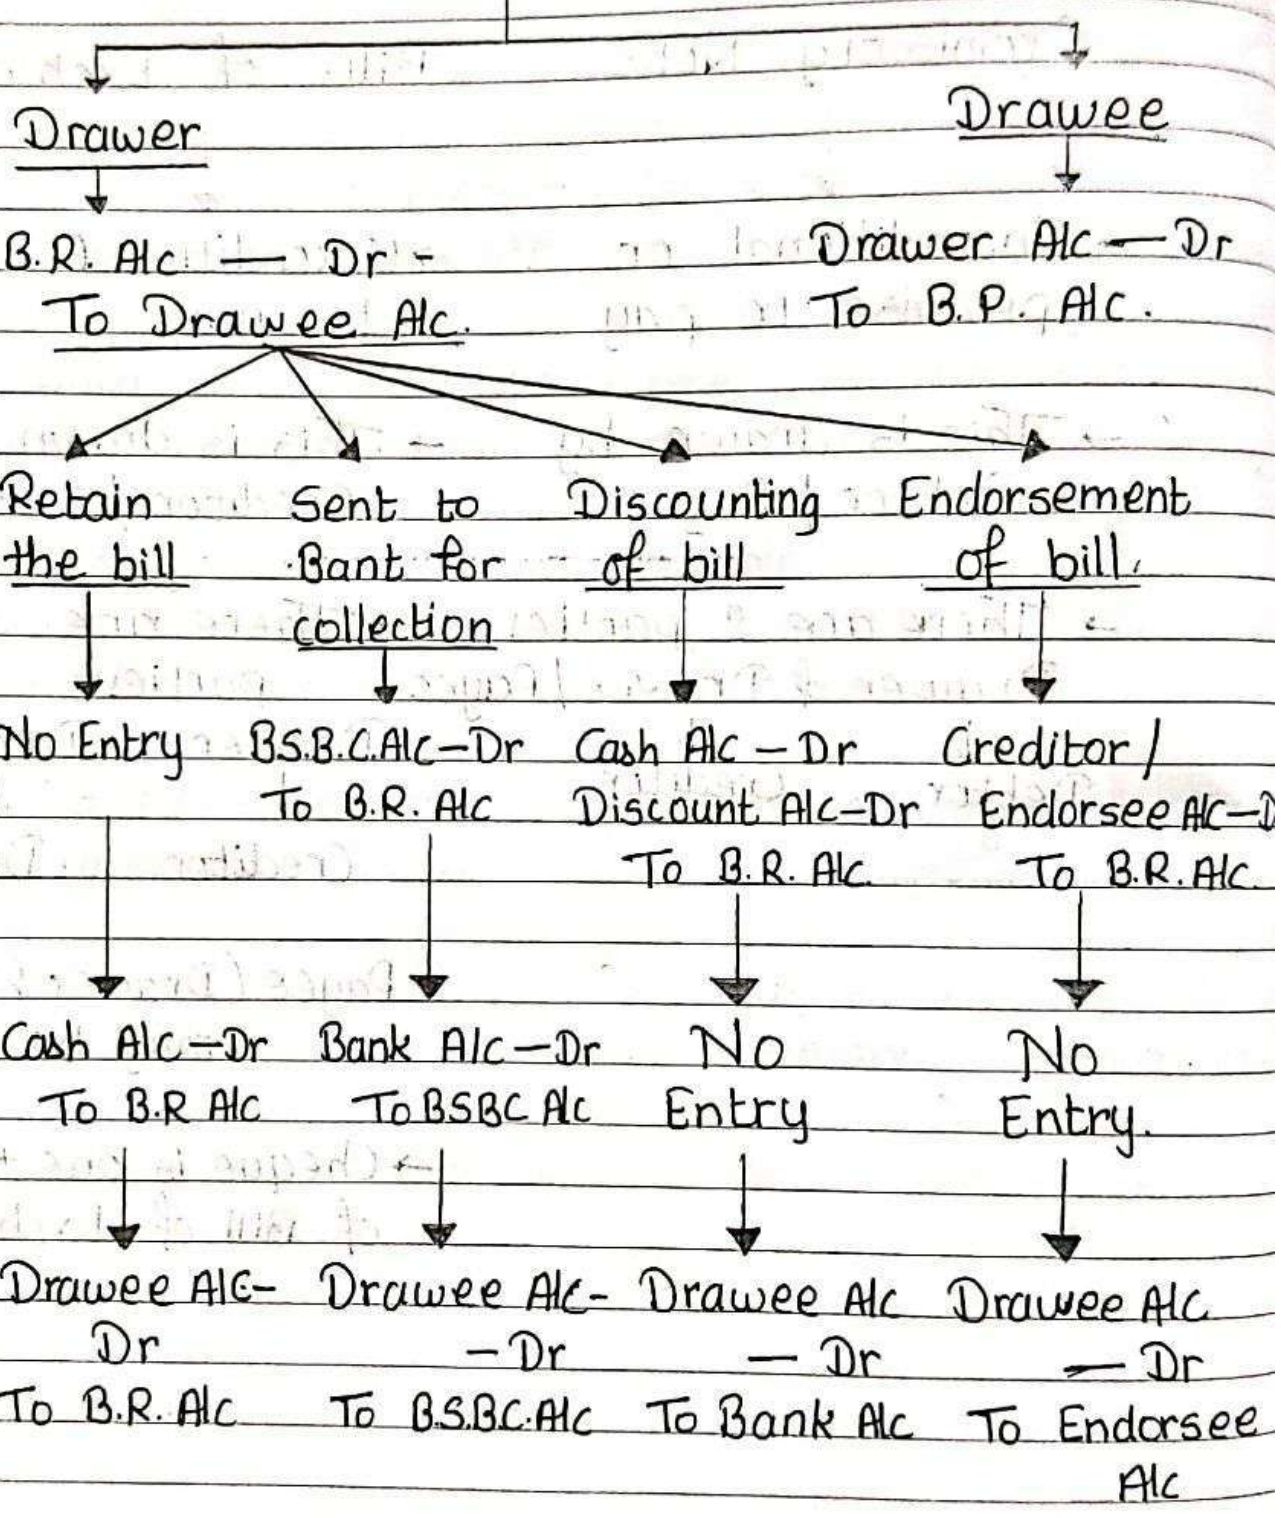 Drawer
Drawee
B.R. A/c — Dr -
To Drawee A/c.
Drawer A/c — Dr
To B.P. A/c.
Retain
the bill
Sent to
Bant for
collection
Discounting
of bill
Endorsement
of bill.
No Entry
B.S.B.C. A/c - Dr
To B.R. A/c
Cash A/c - Dr
Discount A/c - Dr
To B.R. A/c.
Creditor /
Endorsee A/c - D
To B.R. A/c.
Cash A/c - Dr
To B.R A/c
Bank A/c - Dr
To BSBC A/c
No
Entry
No
Entry.
Drawee A/c -
Dr
To B.R. A/c
Drawee A/c -
- Dr
To B.S.B.C. A/c
Drawee A/c
— Dr
To Bank A/c
Drawee A/c
— Dr
To Endorsee
A/c